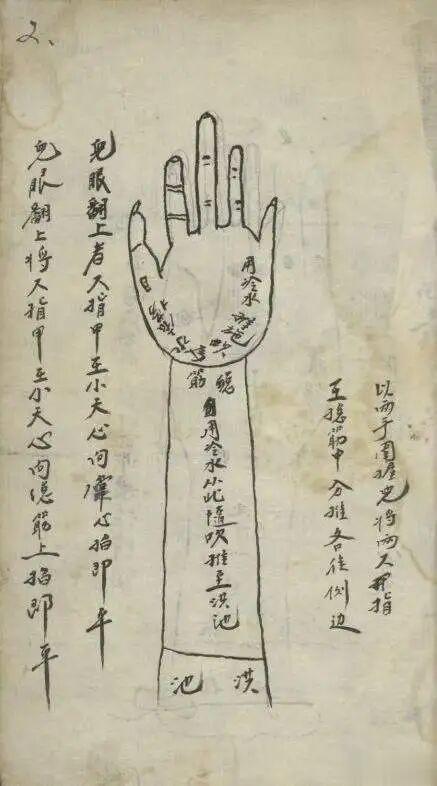 2、
以两手围握儿将两大拇指
至揔筋中分推各往侧边
用冷水
揔筋
用冷水从此随吹推至洪池
洪池
儿眼翻上者大指甲在小天心向掌心掐即平
儿眼翻上将大指甲在小天心向揔筋上掐即平